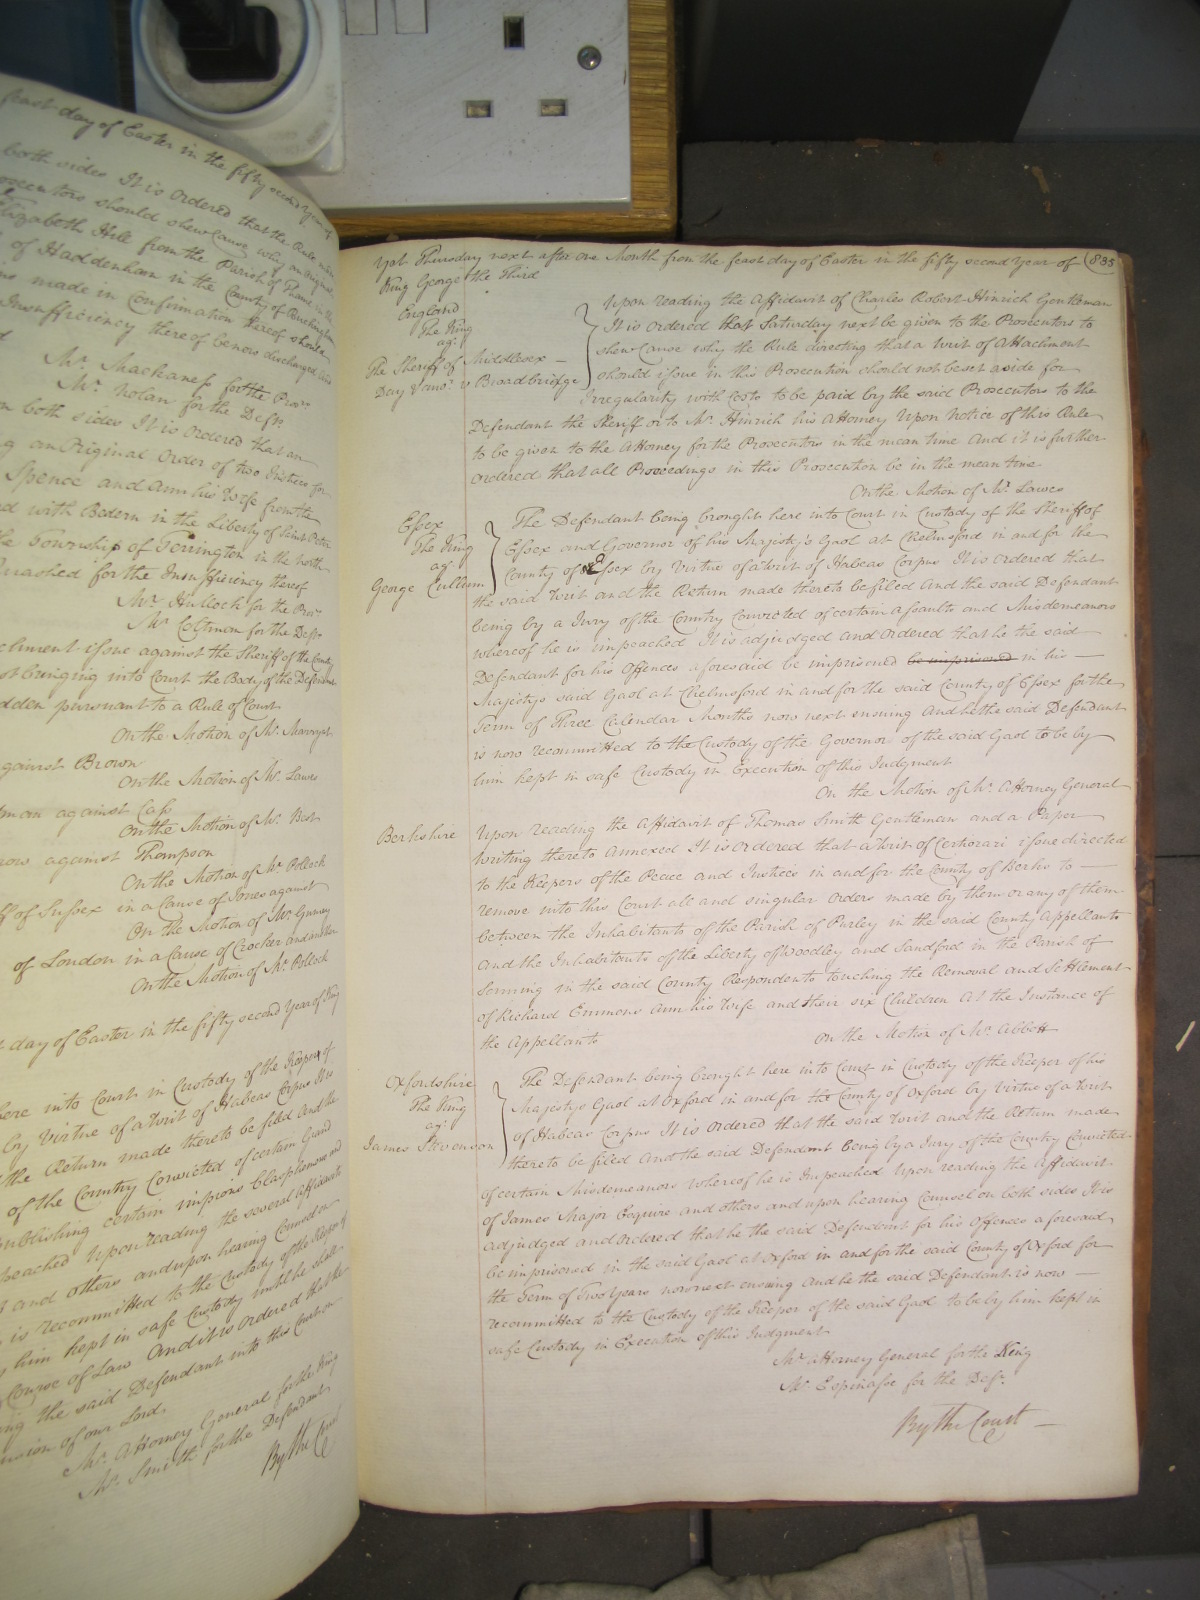 feast day of Easter in the fifty second year of
both sides It is ordered that the Rule made
should shew Cause why an Original
Elizabeth Hill from the Parish of Thame in the
of Haddenham in the County of Buckingham
made in Confirmation thereof should
Insufficiency thereof be now discharged And
Mr. Mackaness for the Prosrs
Mr. Nolan for the Defts
on both sides It is Ordered that an
an Original Order of two Justices for
Spence and Ann his Wife from the
with Bedern in the Liberty of Saint Peter
the Township of Terrington in the North
quashed for the Insufficiency thereof
Mr. Hullock for the Prosr
Mr. Coltman for the Defts
issue against the Sheriff of the County
not bringing into Court the Body of the Defendant
pursuant to a Rule of Court
On the Motion of Mr. Marryat
against Brown
On the Motion of Mr. Lawes
against Cass
On the Motion of Mr. Best
against Thompson
On the Motion of Mr. Pollock
of Sussex in a Cause of Jones against
On the Motion of Mr. Gurney
of London in a Cause of Crocker and another
On the Motion of Mr. Pollock
day of Easter in the fifty second Year of King
here into Court in Custody of the Keeper of
by virtue of a Writ of Habeas Corpus It is
the Return made thereto be filed And the
of the Country Convicted of certain Grand
publishing certain impious blasphemous and
impeached Upon reading the several Affidavits
and others and upon hearing Counsel on
is recommitted to the Custody of the Keeper of
him kept in safe Custody until he shall
Course of Law And it is Ordered that the
the said Defendant into this Court on
of our Lord
Mr. Attorney General for the King
Mr. Smith for the Defendant
By the Court
Yet Thursday next after one Month from the feast day of Easter in the fifty second Year of 835
King George the Third
England
The King
agt
The Sheriff of Middlesex —
Day v Broadbridge
Upon reading the Affidavit of Charles Robert Hinrich Gentleman
It is ordered that Saturday next be given to the Prosecutors to
shew Cause why the Rule directing that a Writ of Attachment
should issue in this Prosecution should not be set aside for
irregularity with Costs to be paid by the said Prosecutors to the
Defendant the Sheriff or to Mr. Hinrich his Attorney Upon Notice of this Rule
to be given to the Attorney for the Prosecutors in the mean time And it is further
ordered that all Proceedings in this Prosecution be in the mean time
On the Motion of Mr. Lawes
Essex
The King
agt
George Cullum
The Defendant being brought here into Court in Custody of the Sheriff of
Essex and Governor of his Majesty's Gaol at Chelmsford in and for the
County of Essex by virtue of a Writ of Habeas Corpus It is ordered that
the said Writ and the Return made thereto be filed And the said Defendant
being by a Jury of the Country Convicted of certain assaults and Misdemeanors
whereof he is impeached It is adjudged and Ordered that he the said
Defendant for his Offences aforesaid be imprisoned be imprisoned in his —
Majestys said Gaol at Chelmsford in and for the said County of Essex for the
Term of Three Calendar Months now next ensuing And he the said Defendant
is now recommitted to the Custody of the Governor of the said Gaol to be by
him kept in safe Custody in Execution of this Judgment
On the Motion of Mr. Attorney General
Berkshire
Upon reading the Affidavit of Thomas Smith Gentleman and a Paper
Writing thereto annexed It is Ordered that a Writ of Certiorari issue directed
to the Keepers of the Peace and Justices in and for the County of Berks to —
remove into this Court all and singular Orders made by them or any of them
between the Inhabitants of the Parish of Purley in the said County Appellants
and the Inhabitants of the Liberty of Woodley and Sandford in the Parish of
Sonning in the said County Respondents touching the Removal and Settlement
of Richard Emmons Ann his Wife and their six Children At the Instance of
the Appellants
On the Motion of Mr. Abbott
Oxfordshire
The King
agt
James Stevenson
The Defendant being brought here into Court in Custody of the Keeper of his
Majestys Gaol at Oxford in and for the County of Oxford by virtue of a Writ
of Habeas Corpus It is Ordered that the said Writ and the Return made
thereto be filed And the said Defendant being by a Jury of the Country Convicted
of certain Misdemeanors whereof he is Impeached Upon reading the Affidavit
of James Major Esquire and others and upon hearing Counsel on both sides It is
adjudged and Ordered that he the said Defendant for his Offences aforesaid
be imprisoned in the said Gaol at Oxford in and for the said County of Oxford for
the Term of Two Years now next ensuing and he the said Defendant is now —
recommitted to the Custody of the Keeper of the said Gaol to be by him kept in
safe Custody in Execution of this Judgment
Mr. Attorney General for the King
Mr. Espinasse for the Deft.
By the Court —